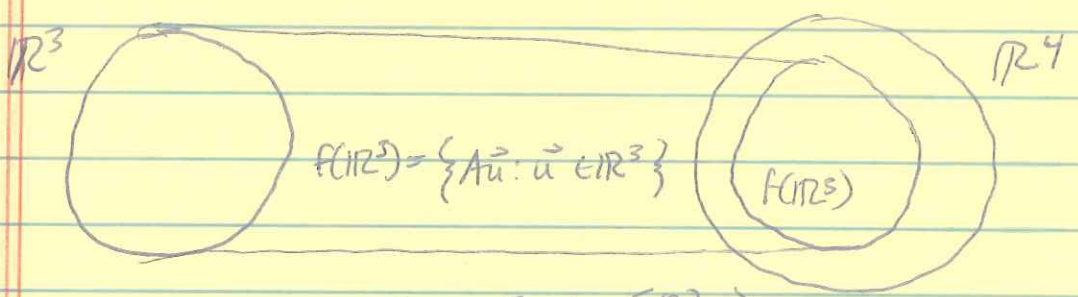 ℝ³
ℝ⁴
f(ℝ³) = {Au⃗ : u⃗ ∈ ℝ³}
f(ℝ³)